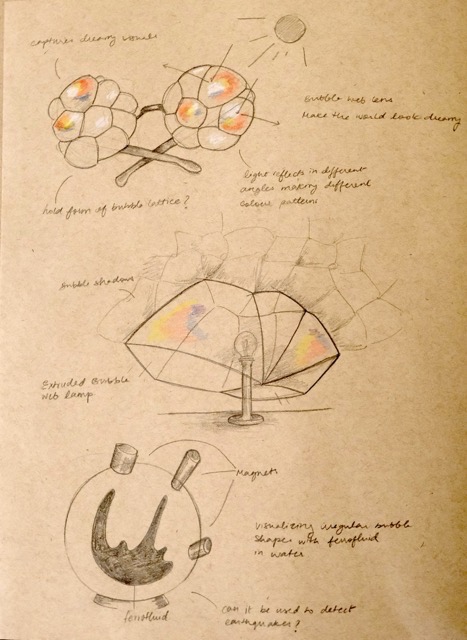 captures dreamy visuals
Bubble web lens
Make the world look dreamy
light reflects in different
angles making different
colour patterns
hold form of bubble lattice?
Bubble shadows
Extruded Bubble
Web lamp.
Magnets
visualizing irregular bubble
shapes with ferrofluid
in water
ferrofluid
can it be used to detect
earthquakes?